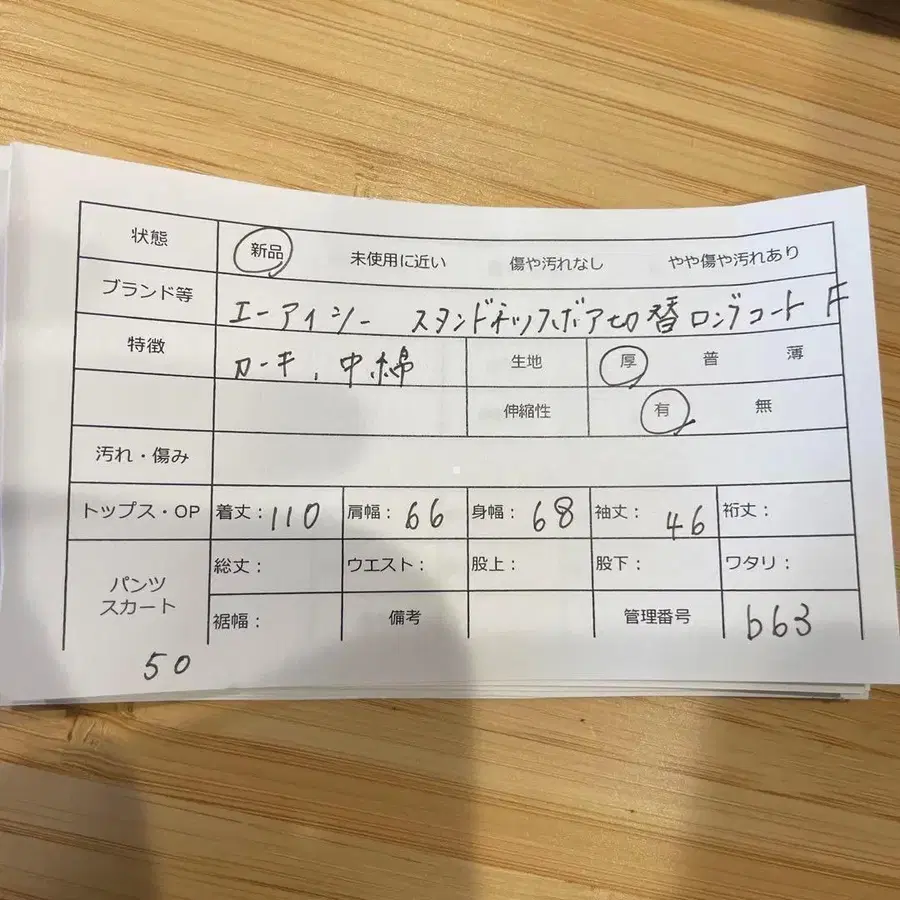 状態 新品 未使用に近い 傷や汚れなし やや傷や汚れあり
ブランド等 エーアイシー スタンドネックボア切替ロングコート F
特徴 カーキ、中綿 生地 厚 普 薄
伸縮性 有 無
汚れ・傷み
トップス・OP 着丈:110 肩幅:66 身幅:68 袖丈:46 裄丈:
パンツ スカート 総丈: ウエスト: 股上: 股下: ワタリ:
裾幅: 備考 管理番号 b63
50